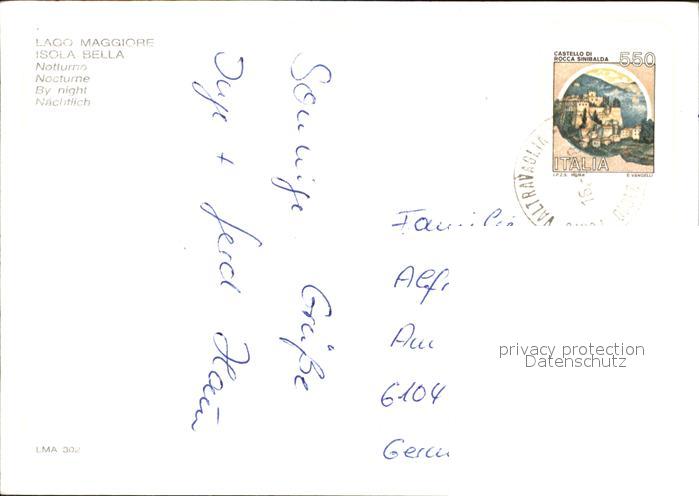 LAGO MAGGIORE
ISOLA BELLA
Notturno
Nocturne
By night
Nächtlich
CASTELLO DI
ROCCA SINIBALDA
550
ITALIA
I.P.Z.S. ROMA E. VANGELLI
VALTRAVAGLIA
Sonnige Grüße
+ Gerd
Familie
Alf
Am
6104
Germ
privacy protection
Datenschutz
LMA 302